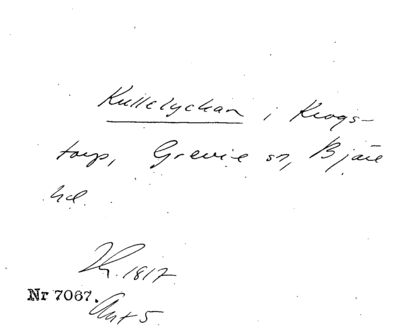 Kullelyckan i Krogs-
torp, Grevie sn, Bjäre
hd.
1817
Nr 7067.
Akt 5